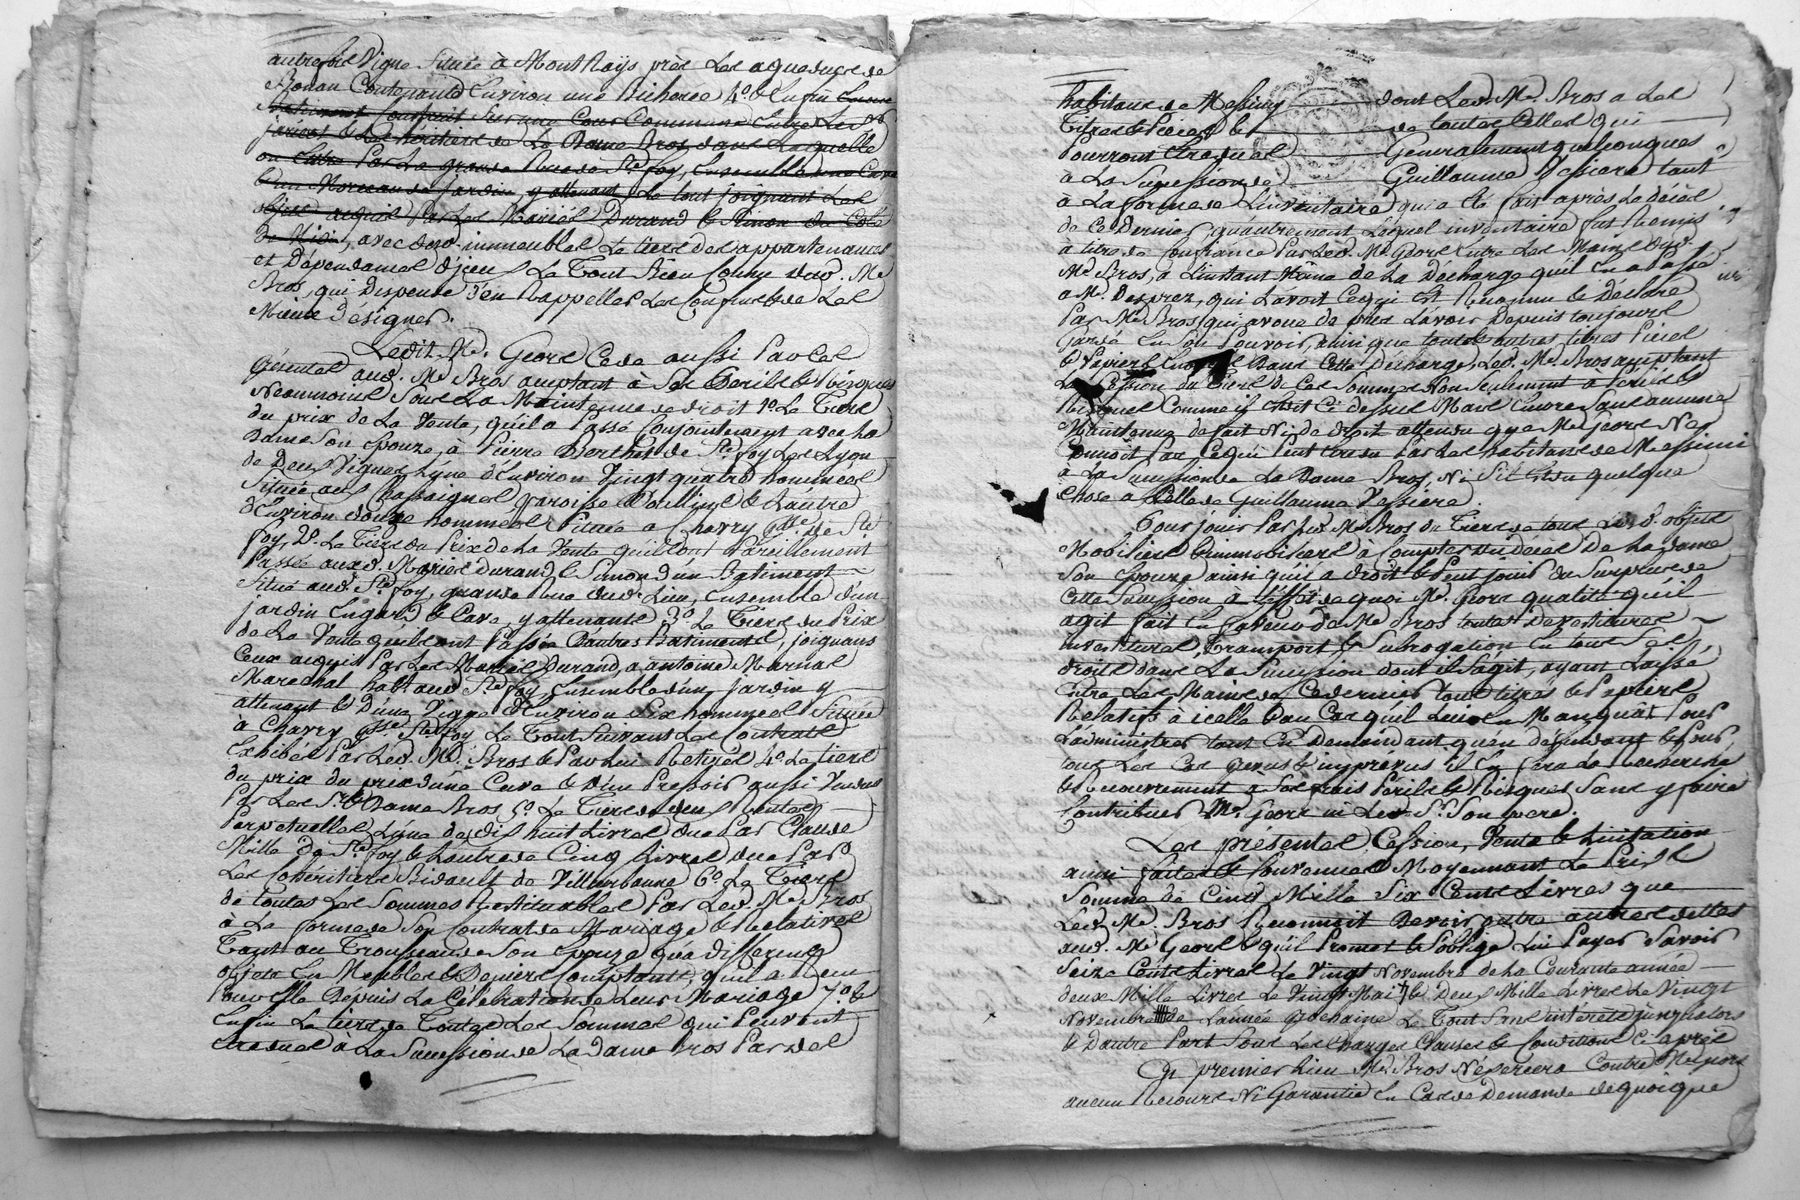 autrefois Vigne Située à Mont Rays près Les aqueducs de
Bonan Contenant Environ une Bicherée 4º. & Enfin Encore
Batiment Construit Sur une Cour Commune Entre Les
& Les héritiers de La Dame Bros dans Laquelle
on Entre Par La grande Rue de Ste. foy, Ensemble une Cave
& un Morceau de Jardin y attenant, Le tout joignant Les
objets acquis Par Les Mariés Durand & Simon du Coté
de Midi, avec desd. immeubles Le tiers des appartenances
et Dépendances d'jceux Le Tout Bien Connu dud. Me
Bros, qui Dispense d'en Rappeller Les Confins & de Les
Mieux designer.
Ledit Me. Geors Cede aussi Par Les
présentes aud. Me Bros acceptant à Ses Perils & Risques
Néanmoins Sous La Maintenue de droit 1º. Le Tiers
du prix de La Vente, qu'il a Passé Conjointement avec La
Dame Son Epouze, à Pierre Berthet de Ste. foy Les Lyon
de Deux Vignes L'une d'Environ Vingt quatre hommées
Située aux Chassaignes, paroisse d'ullins & L'autre
d'Environ douze hommées Située à Charry psse. de Ste
foy, 2º. Le Tiers du Prix de La Vente qu'ils ont Pareillement
Passée auxd. Mariés Durand & Simon d'un Batiment
Situé aud. Ste. foy, grande Rue dud. Lieu, Ensemble d'un
jardin Engard & Cave, y attenants 3º. Le Tiers du Prix
de La Vente qu'ils ont Passée d'autres Batiments, joignans
Ceux acquis Par Les Mariés Durand, a antoine Marnas
Maréchal habt. aud. Ste. foy, Ensemble d'un jardin y
attenant & D'une Vigne d'Environ Six hommées Située
à Charry psse. Ste. foy Le Tout Suivant Les Contrats
Exhibés Par Led. Me. Bros & Par Lui Retirés 4º. Le tiers
du prix du prix d'une Cuve & d'un Pressoir aussi Vendus
Par Les Sr. & Dame Bros 5º. Le Tiers de deux Rentes
Perpétuelles L'une de dix huit Livres due Par Claude
Mille de Ste. foy & L'autre de Cinq Livres due Par
Les Coheritiers Bidault de Villeurbanne 6º. Le Tiers
de Toutes Les Sommes Restituables Par Led. Me. Bros
à La forme de Son Contrat de Mariage & Relatives
Tant au Trousseau de Son Epouze qu'a differents
objets En Meubles & Deniers Comptants, qu'il a Reçu
Pour Elle Depuis La Célébration de Leur Mariage 7º. &
Enfin Le tiers de Toutes Les Sommes qui Peuvent
Etre dues à La Succession de La Dame Bros Par des
habitans de Messimy dont Led. Me. Bros a Les
Titres & Pieces & de toutes Celles qui
Pourront Etre dues Generalement quelconques
a La Succession de Guillaume Vessiere tant
a La forme de L'inventaire qui a Eté fait après Le décès
de Ce Dernier, qu'autrement Lequel inventaire fut Remis
à titre de Confiance Par Led. Me. Geors Entre Les Mains dud.
Me Bros, a L'instant Même de La Decharge qu'il En a Passé
a M. Desprez, qui L'avoit Ce qui Est Reconnu & Déclaré
Par Me Bros qui avoue de plus L'avoir Depuis toujours
gardé En Son Pouvoir, ainsi que toutes autres titres Pieces
& Papiers Dans Cette Décharge, Led. Me Bros acceptant
La Cession du Tiers de Ces Sommes Non Seulement a Perils &
Risques Comme il Est dit Ci dessus Mais Encore Sans aucune
Maintenue de fait Ni de droit attendu que Me Geors Ne
Connoit Pas Ce qui Peut Etre du Par Les habitans de Messimi
à La Succession de La Dame Bros, Ni S'il Est du quelque
Chose a Celle de Guillaume Vessiere
Pour jouir Par Led. Me Bros du Tiers de tous Les d. objets
Mobiliers & immobiliers à Compter du décès De La Dame
Son Epouze ainsi qu'il a droit & Peut jouir du Surplus de
Cette Succession à L'Effet de quoi Me. Geors qualité qu'il
agit fait En faveur de Me Bros toutes Devestitures
investitures, Transport & Subrogation En tous Ses
droits dans La Succession dont il S'agit, ayant Laissé
Entre Les Mains de Ce dernier tous titres & Papiers
Relatifs à icelle & au Cas qu'il Lui En Manquât Pour
L'administrer tant En Demandant qu'en défendant & Pour
tous Les Cas prevus & imprevus il En fera La Recherche
& Recouvrement à Ses frais Périls & Risques Sans y faire
Contribuer Me. Geors ni Led. Sr. Son pere.
Les présentes Cession, Vente & Licitation
ainsi faites & Convenues Moyennant Le Prix &
Somme de Cinq Mille Six Cents Livres que
Led. Me. Bros Reconnoit Devoir outre autres dettes
aud. Me Geors & qu'il Promet & S'oblige Lui Payer Savoir
Seize Cents Livres Le Vingt Novembre de La Courante année
deux Mille Livres Le Vingt Mai, & Deux Mille Livres Le Vingt
Novembre de L'année prochaine Le Tout Sans interets jusqu'alors
& D'autre Part Sous Les Charges Clauses & Conditions Ci après
En premier Lieu Me Bros N'exercera Contre Me Geors
aucun Recours Ni Garantie En Cas de Demande de quoi que